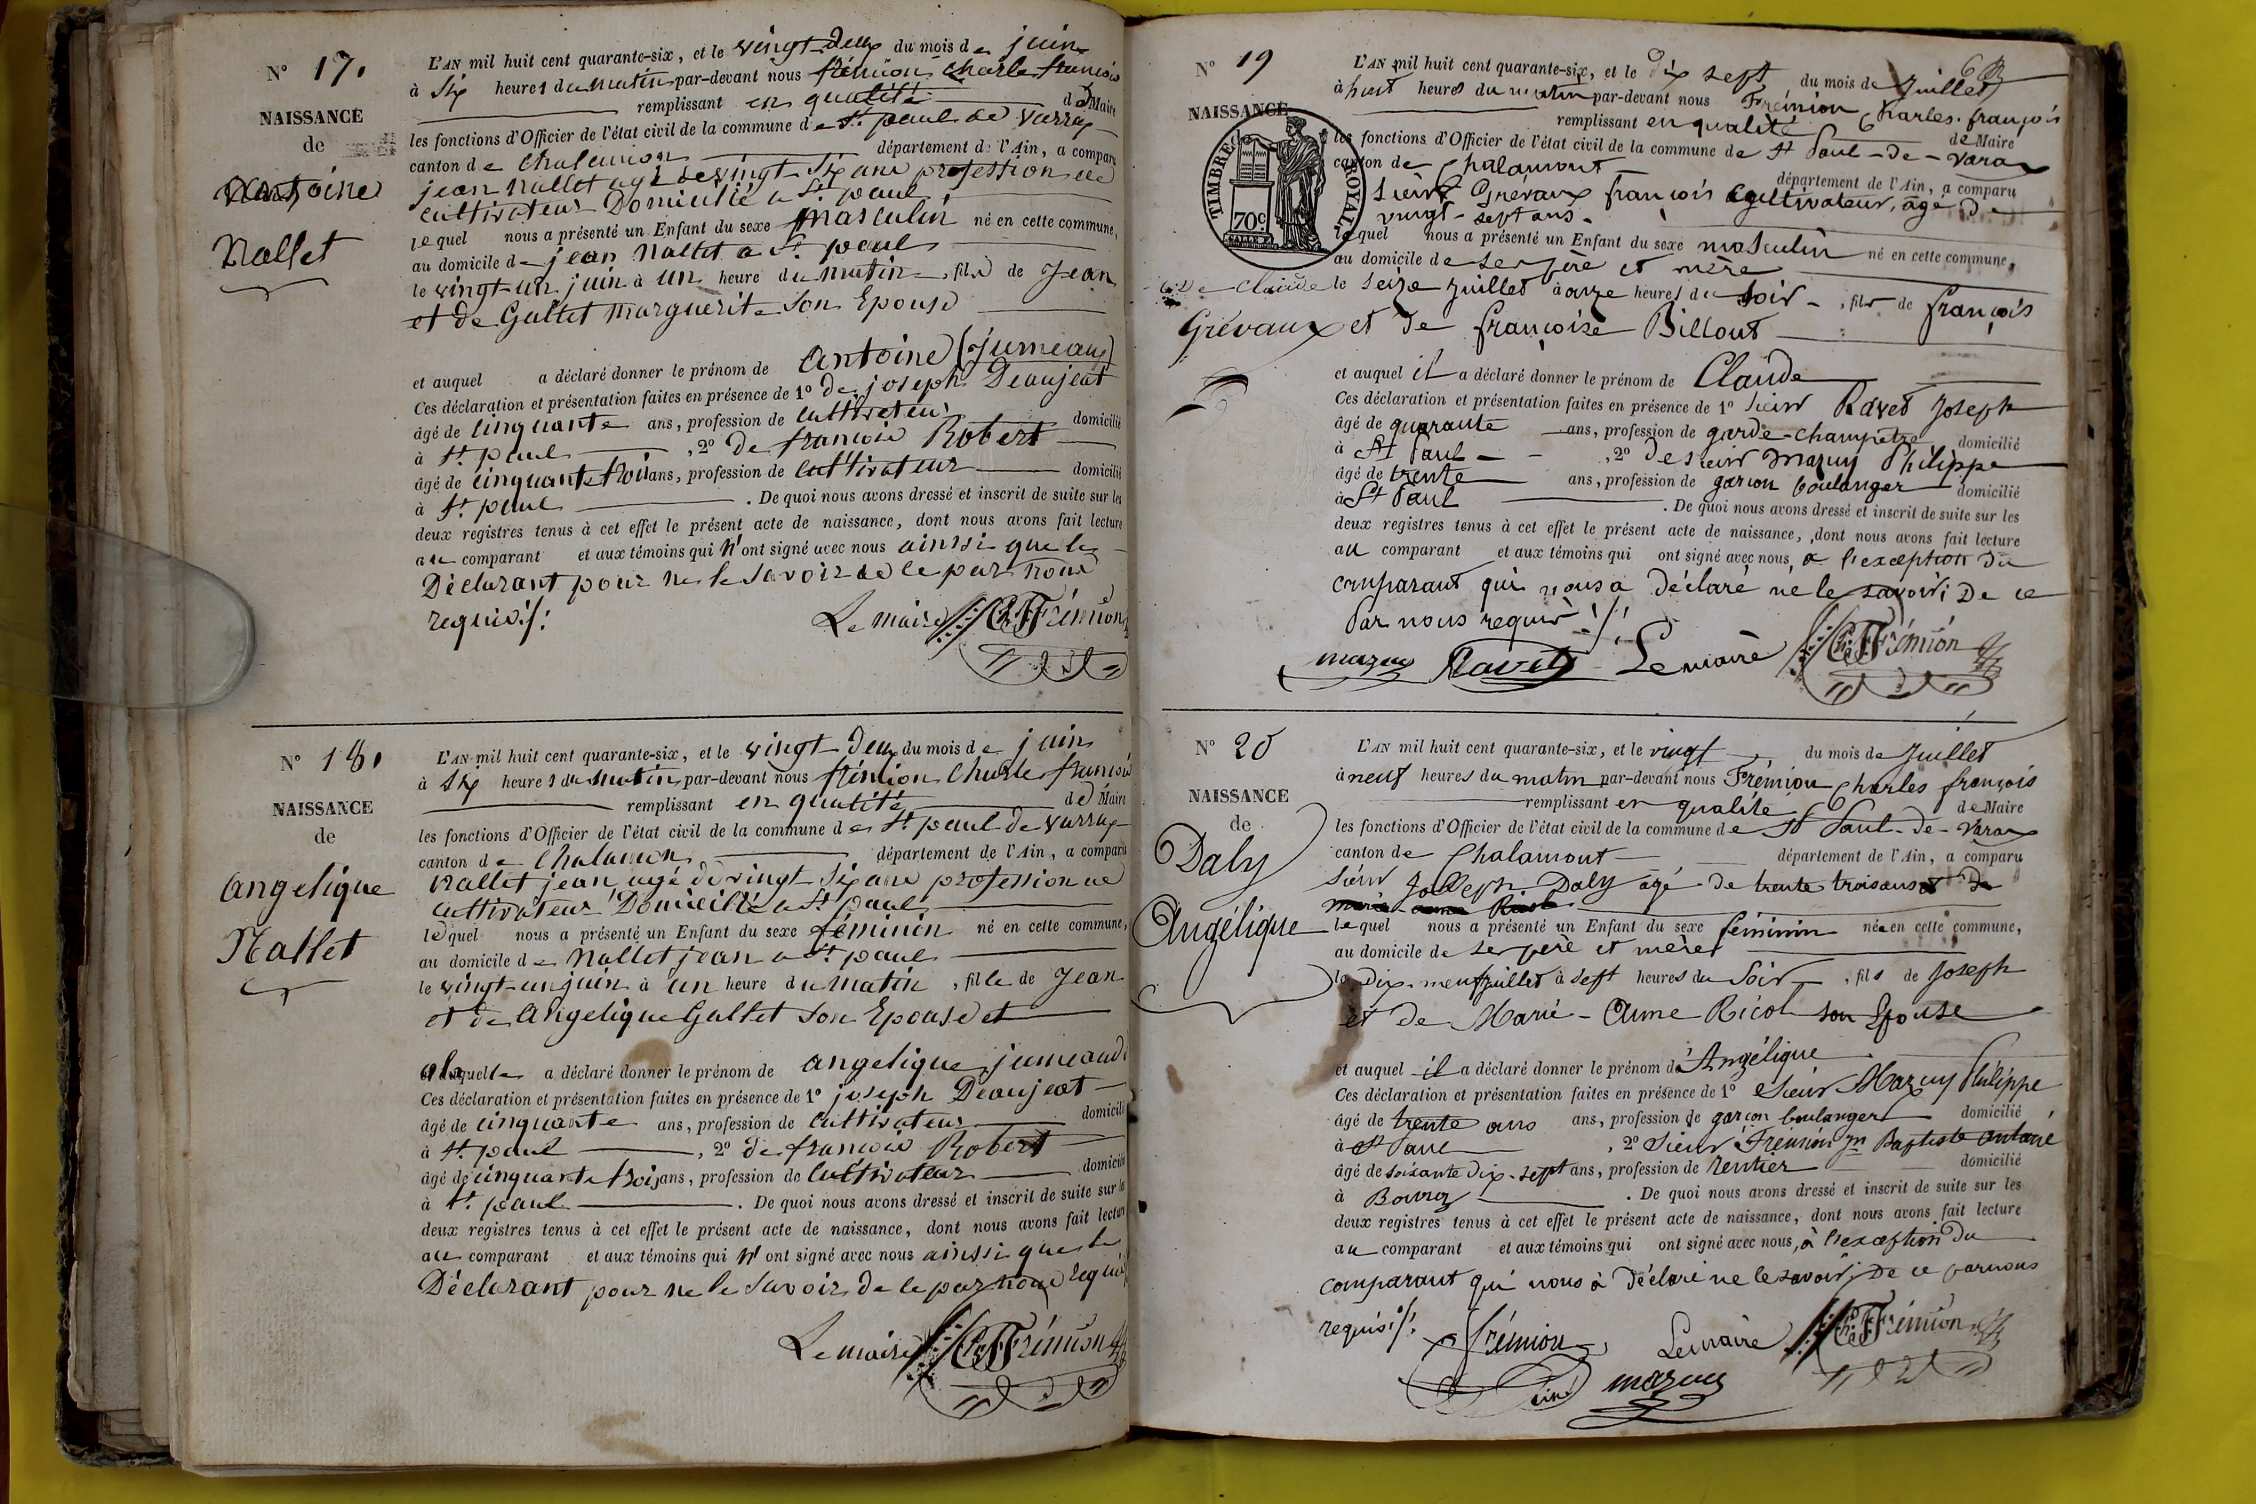 N° 17.
NAISSANCE
de
Antoine
Nallet
L'AN mil huit cent quarante-six, et le vingt-deux du mois de juin
à Six heures du matin par-devant nous frémion Charle francois
remplissant en qualité de Maire
les fonctions d'Officier de l'état civil de la commune de St. paul de Varrax
canton de Chalamon département de l'Ain, a comparu
jean Nallet agé de vingt-Six ans profession de
Cultivateur Domicilié a St. paul
lequel nous a présenté un Enfant du sexe masculin né en cette commune,
au domicile de jean Nallet a St. paul
le vingt-un juin à un heure du matin, fils de Jean
et de Gallet marguerite Son Epouse
et auquel a déclaré donner le prénom de Antoine (jumeaux)
Ces déclaration et présentation faites en présence de 1° De joseph Deaujeat
âgé de cinquante ans, profession de Cultivateur domicilié
à St. paul, 2° De francois Robert
âgé de cinquante trois ans, profession de Cultivateur domicilié
à St. paul. De quoi nous avons dressé et inscrit de suite sur les
deux registres tenus à cet effet le présent acte de naissance, dont nous avons fait lecture
au comparant et aux témoins qui n'ont signé avec nous ainsi que le
Déclarant pour ne le Savoir de ce par nous
requis ./.
Le maire Ch. F. Frémion
N° 18.
NAISSANCE
de
Angelique
Nallet
L'AN mil huit cent quarante-six, et le vingt-Deux du mois de juin
à Six heures du matin par-devant nous frémion Charle francois
remplissant en qualité de Maire
les fonctions d'Officier de l'état civil de la commune de St. paul-de varrax
canton de Chalamon département de l'Ain, a comparu
Nallet jean agé de vingt-Six ans profession de
Cultivateur Domicilié a St. paul
lequel nous a présenté un Enfant du sexe féminin né en cette commune,
au domicile de Nallet jean a St. paul
le vingt-un juin à un heure du matin, fille de Jean
et de Angelique Gallet Son Epouse et
a laquelle a déclaré donner le prénom de angelique jumeaux
Ces déclaration et présentation faites en présence de 1° joseph Deaujeat
âgé de cinquante ans, profession de Cultivateur domicilié
à St. paul, 2° de francois Robert
âgé de cinquante trois ans, profession de Cultivateur domicilié
à St. paul. De quoi nous avons dressé et inscrit de suite sur les
deux registres tenus à cet effet le présent acte de naissance, dont nous avons fait lecture
au comparant et aux témoins qui n'ont signé avec nous ainssi que le
Déclarant pour ne le Savoir de ce par nous requis
Le maire Ch. F. Frémion
N° 19
NAISSANCE
de Claude
Grévaux
TIMBRE ROYAL
70c.
L'AN mil huit cent quarante-six, et le dix sept du mois de Juillet
à huit heures du matin par-devant nous Frémion Charles françois
remplissant en qualité de Maire
les fonctions d'Officier de l'état civil de la commune de St Paul-de-Varax
canton de Chalamont département de l'Ain, a comparu
Sieur Grevaux françois cultivateur, âgé de
vingt-sept ans.
lequel nous a présenté un Enfant du sexe masculin né en cette commune,
au domicile de ses père et mère
le seize Juillet à onze heures du soir, fils de françois
et de françoise Billout
et auquel il a déclaré donner le prénom de Claude
Ces déclaration et présentation faites en présence de 1° Sieur Ravet Joseph
âgé de quarante ans, profession de garde-champêtre domicilié
à St Paul, 2° de sieur Mazuy Philippe
âgé de trente ans, profession de garcon boulanger domicilié
à St Paul. De quoi nous avons dressé et inscrit de suite sur les
deux registres tenus à cet effet le présent acte de naissance, dont nous avons fait lecture
au comparant et aux témoins qui ont signé avec nous, a l'exception du
comparant qui nous a déclaré ne le savoir; De ce
Par nous requis ./.
mazuy Ravet Le maire Ch. F. Frémion
N° 20
NAISSANCE
de
Daly
Angélique
L'AN mil huit cent quarante-six, et le vingt du mois de Juillet
à neuf heures du matin par-devant nous Frémion Charles françois
remplissant en qualité de Maire
les fonctions d'Officier de l'état civil de la commune de St Paul-de-Varax
canton de Chalamont département de l'Ain, a comparu
Sieur Joseph Daly âgé de trente trois ans
lequel nous a présenté un Enfant du sexe féminin née en cette commune,
au domicile de ses père et mère
le dix-neuf juillet à sept heures du Soir, fils de Joseph
et de Marie-Anne Ricol son Epouse
et auquel il a déclaré donner le prénom d'Angélique
Ces déclaration et présentation faites en présence de 1° Sieur Mazuy Philippe
âgé de trente ans ans, profession de garcon boulanger domicilié
à St Paul, 2° Sieur Frémion Jn Baptiste Antoine
âgé de soixante dix-sept ans, profession de rentier domicilié
à Bourg. De quoi nous avons dressé et inscrit de suite sur les
deux registres tenus à cet effet le présent acte de naissance, dont nous avons fait lecture
au comparant et aux témoins qui ont signé avec nous, à l'exception Du
comparant qui nous à déclaré ne le savoir; De ce par nous
requis ./.
frémion Le maire Ch. F. Frémion
mazuy